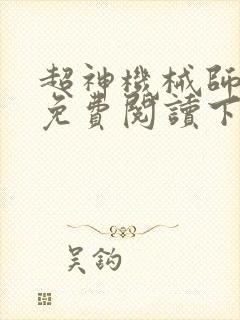 超神機械師
免費閱讀下
吳鈎